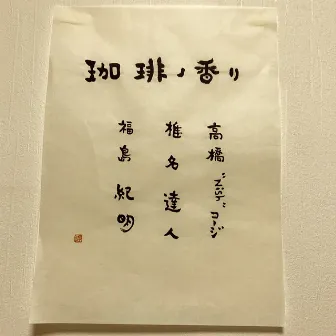 珈琲ノ香り
高橋"Nist"コージ
椎名達人
福島紀明